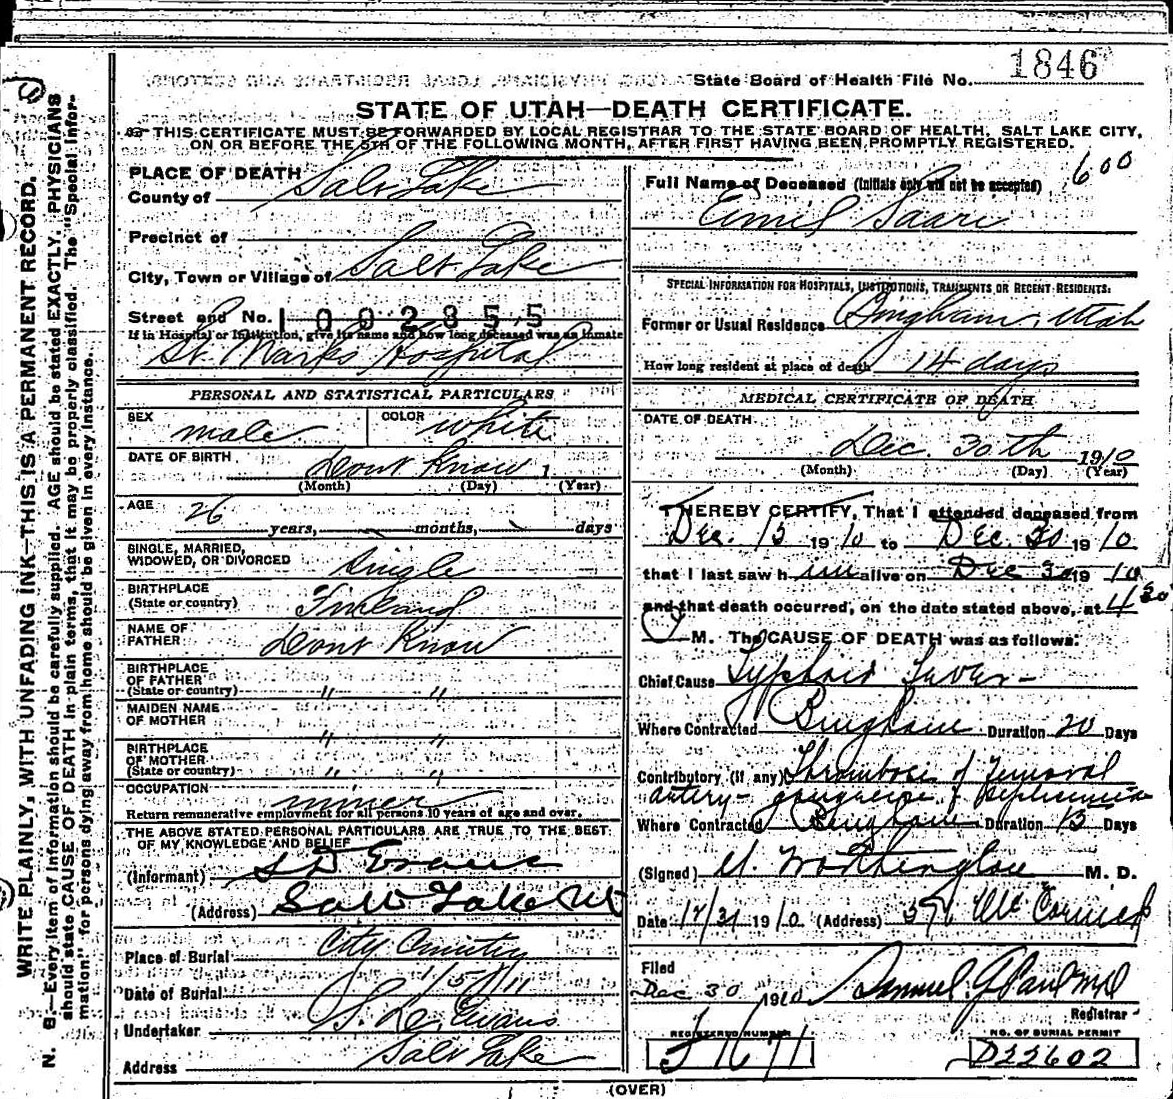 State Board of Health File No. 1846
STATE OF UTAH—DEATH CERTIFICATE.
THIS CERTIFICATE MUST BE FORWARDED BY LOCAL REGISTRAR TO THE STATE BOARD OF HEALTH, SALT LAKE CITY,
ON OR BEFORE THE 5TH OF THE FOLLOWING MONTH, AFTER FIRST HAVING BEEN PROMPTLY REGISTERED.
WRITE PLAINLY, WITH UNFADING INK—THIS IS A PERMANENT RECORD.
N. B.—Every item of information should be carefully supplied. AGE should be stated EXACTLY. PHYSICIANS
should state CAUSE OF DEATH in plain terms, that it may be properly classified. The "Special Infor-
mation" for persons dying away from home should be given in every instance.
PLACE OF DEATH
County of Salt Lake
Precinct of
City, Town or Village of Salt Lake
Street and No. 1002355
If in Hospital or Institution, give its name and how long deceased was an inmate
St. Marks Hospital
PERSONAL AND STATISTICAL PARTICULARS
SEX male COLOR white
DATE OF BIRTH Dont Know 1
(Month) (Day) (Year)
AGE 26 years, months, days
SINGLE, MARRIED,
WIDOWED, OR DIVORCED Single
BIRTHPLACE
(State or country) Finland
NAME OF
FATHER Dont Know
BIRTHPLACE
OF FATHER
(State or country) " "
MAIDEN NAME
OF MOTHER " "
BIRTHPLACE
OF MOTHER
(State or country) " "
OCCUPATION miner
Return remunerative employment for all persons 10 years of age and over.
THE ABOVE STATED PERSONAL PARTICULARS ARE TRUE TO THE BEST
OF MY KNOWLEDGE AND BELIEF
(Informant) S D Evans
(Address) Salt Lake Ut
Place of Burial City Cemetry
Date of Burial 1/5/11
Undertaker S. D. Evans
Address Salt Lake
600
Full Name of Deceased (Initials only will not be accepted)
Emil Saari
SPECIAL INFORMATION FOR HOSPITALS, INSTITUTIONS, TRANSIENTS OR RECENT RESIDENTS:
Former or Usual Residence Bingham, Utah
How long resident at place of death 14 days
MEDICAL CERTIFICATE OF DEATH
DATE OF DEATH
Dec. 30th 1910
(Month) (Day) (Year)
I HEREBY CERTIFY, That I attended deceased from
Dec. 13 1910 to Dec. 30 1910
that I last saw him alive on Dec 30 1910
and that death occurred, on the date stated above, at 4 30
P M. The CAUSE OF DEATH was as follows:
Chief Cause Typhoid Fever
Where Contracted Bingham Duration 20 Days
Contributory (if any) Thrombosis of Femoral
artery - gangrene &
Where Contracted Bingham Duration 13 Days
(Signed) Worthington M. D.
Date 12/31 1910 (Address) McCornick
Filed
Dec 30 1910 Samuel G Paul MD
Registrar
REGISTERED NUMBER NO. OF BURIAL PERMIT
J 1671 D22602
(OVER)